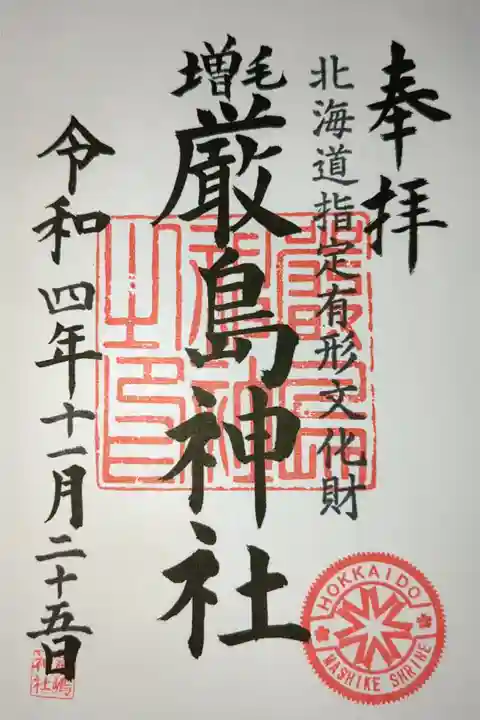 奉拝
北海道指定有形文化財
増毛
厳島神社
令和四年十一月二十五日
HOKKAIDO
MASHIKE SHRINE